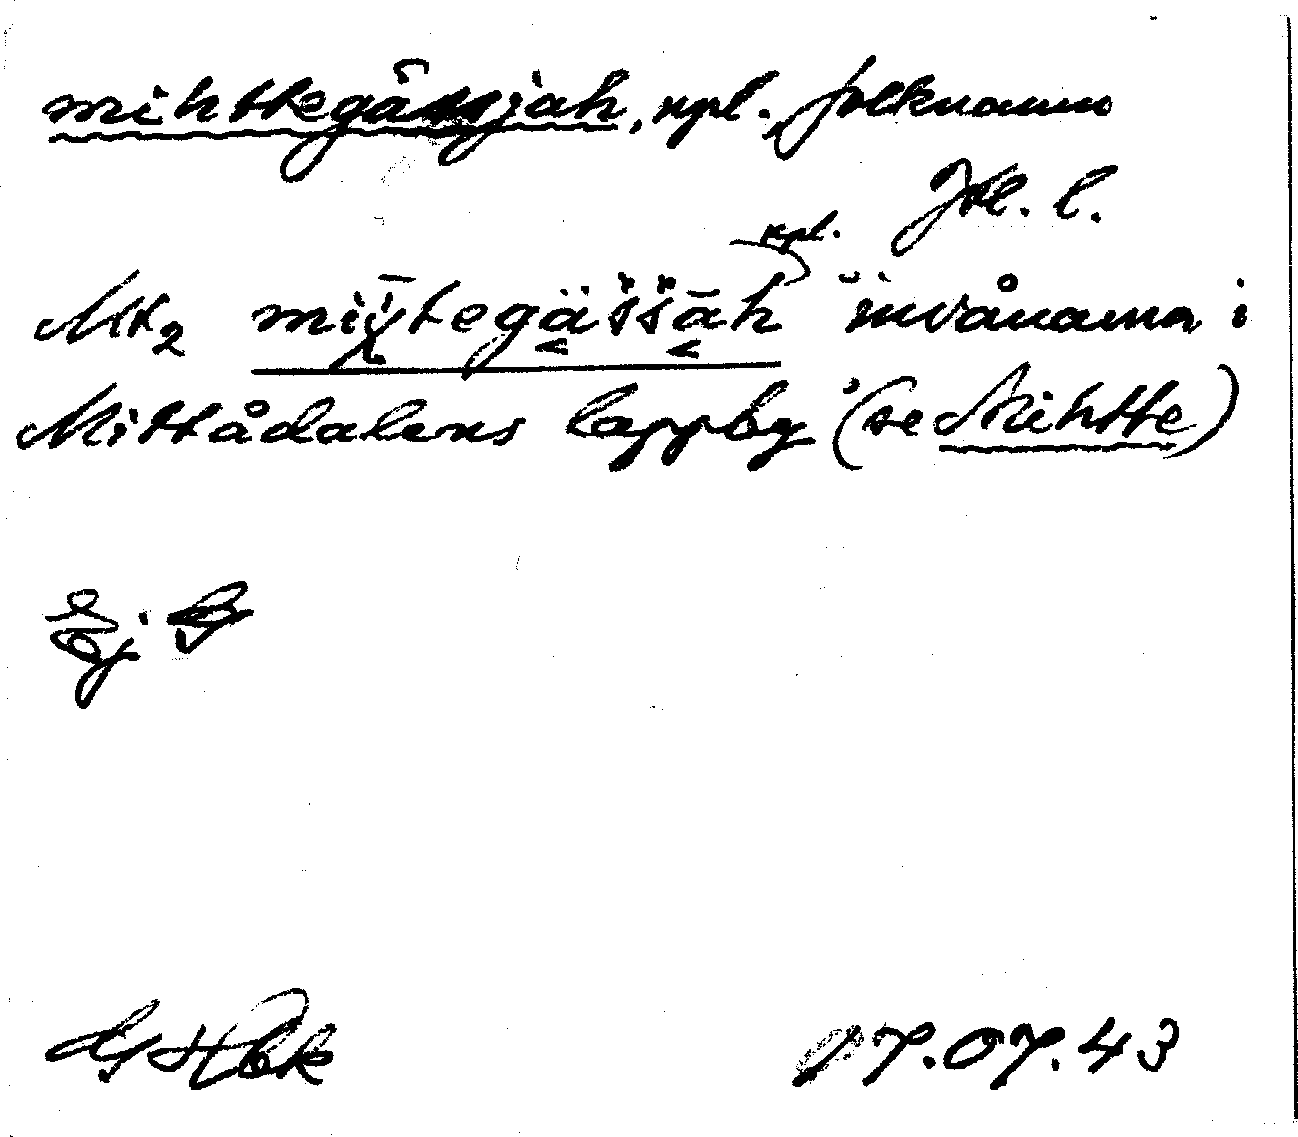 mihttegåssjah, npl., folknamn
Htl. l.
npl.
Mt2 miχ̄tegäššāh "invånarna i
Mittådalens lappby" (se Mihtte)
Ej
07.07.43